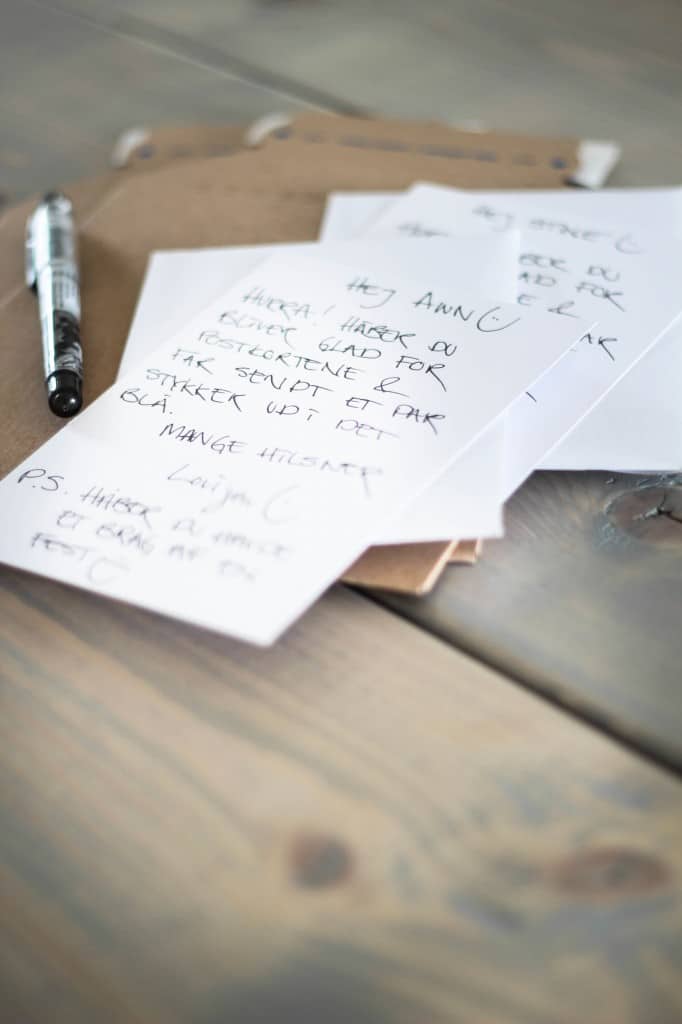 Hej Ann
HURRA! HÅBER DU
BLIVER GLAD FOR
POSTKORTENE &
FÅR SENDT ET PAR
STYKKER UD I DET
BLÅ.
MANGE HILSNER
P.S. HÅBER DU HAVDE
ET BRAG AF EN
FEST
Hej
BER DU
AD FOR
E &
AR